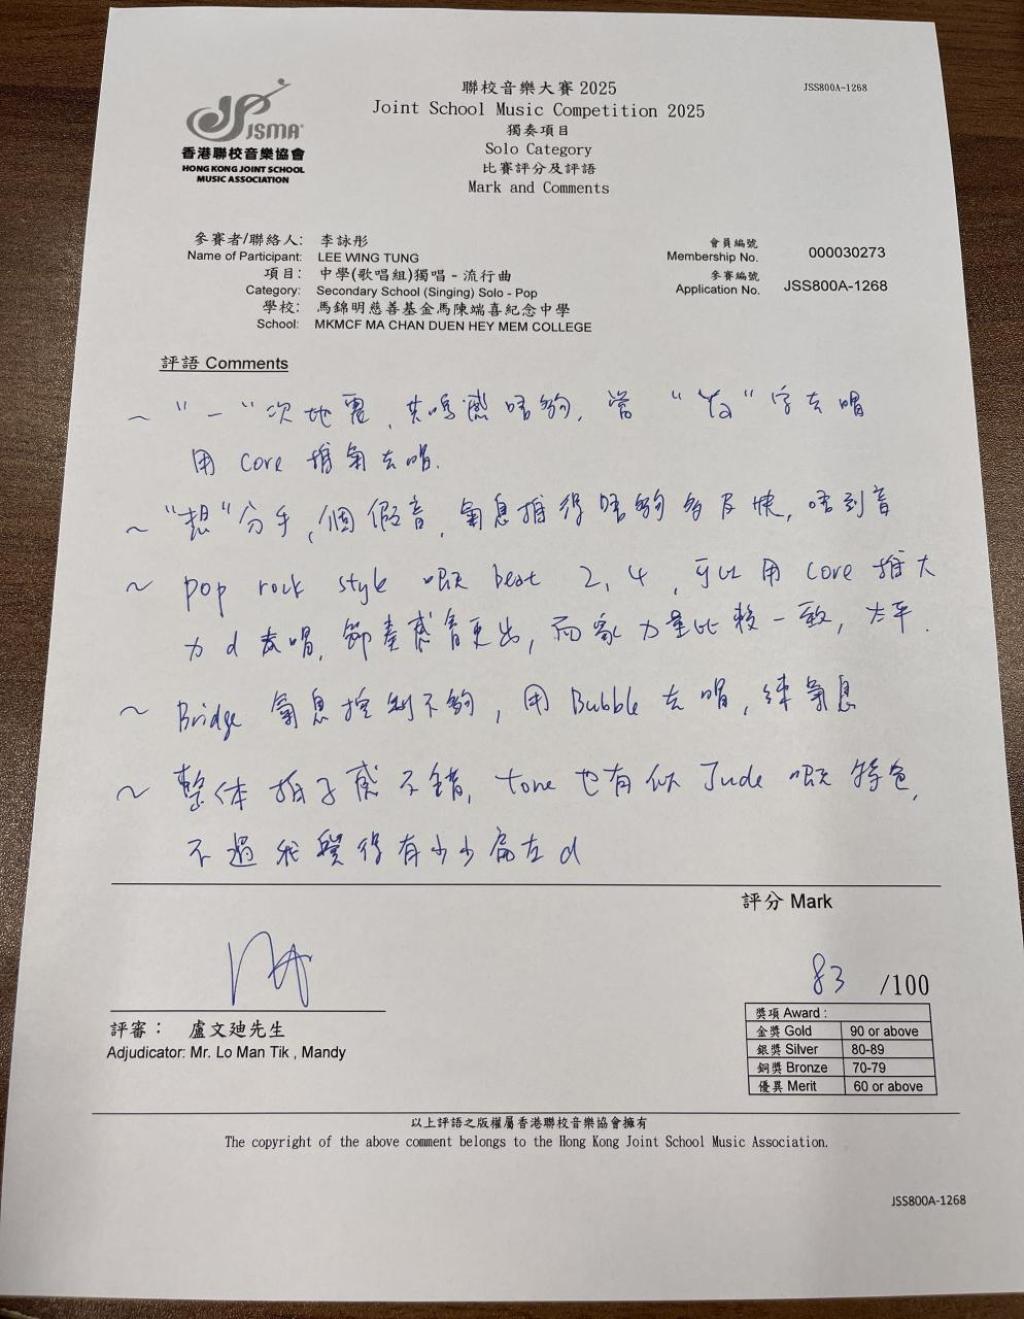 聯校音樂大賽 2025
JSS800A-1268
Joint School Music Competition 2025
獨奏項目
Solo Category
比賽評分及評語
Mark and Comments
JSMA
香港聯校音樂協會
HONG KONG JOINT SCHOOL
MUSIC ASSOCIATION
參賽者/聯絡人: 李詠彤
Name of Participant: LEE WING TUNG
項目: 中學(歌唱組)獨唱 - 流行曲
Category: Secondary School (Singing) Solo - Pop
學校: 馬錦明慈善基金馬陳端喜紀念中學
School: MKMCF MA CHAN DUEN HEY MEM COLLEGE
會員編號
Membership No. 000030273
參賽編號
Application No. JSS800A-1268
評語 Comments
~ "一"次地震, 共鳴感唔夠, 當 "Ya" 字去唱
用 core 推氣去唱.
~ "想"分手, 個假音, 氣息推得唔夠多及快, 唔到音
~ pop rock style 嘅 beat 2, 4, 可以用 core 推大
力 d 去唱, 節奏感會更出, 而家力量比較一致, 太平.
~ Bridge 氣息控制不夠, 用 Bubble 去唱, 練氣息
~ 整体拍子感不錯, tone 也有似 Jude 嘅特色,
不過我覺得有少少扁左 d
評分 Mark
83 /100
評審： 盧文廸先生
Adjudicator: Mr. Lo Man Tik , Mandy
獎項 Award :
金獎 Gold 90 or above
銀獎 Silver 80-89
銅獎 Bronze 70-79
優異 Merit 60 or above
以上評語之版權屬香港聯校音樂協會擁有
The copyright of the above comment belongs to the Hong Kong Joint School Music Association.
JSS800A-1268